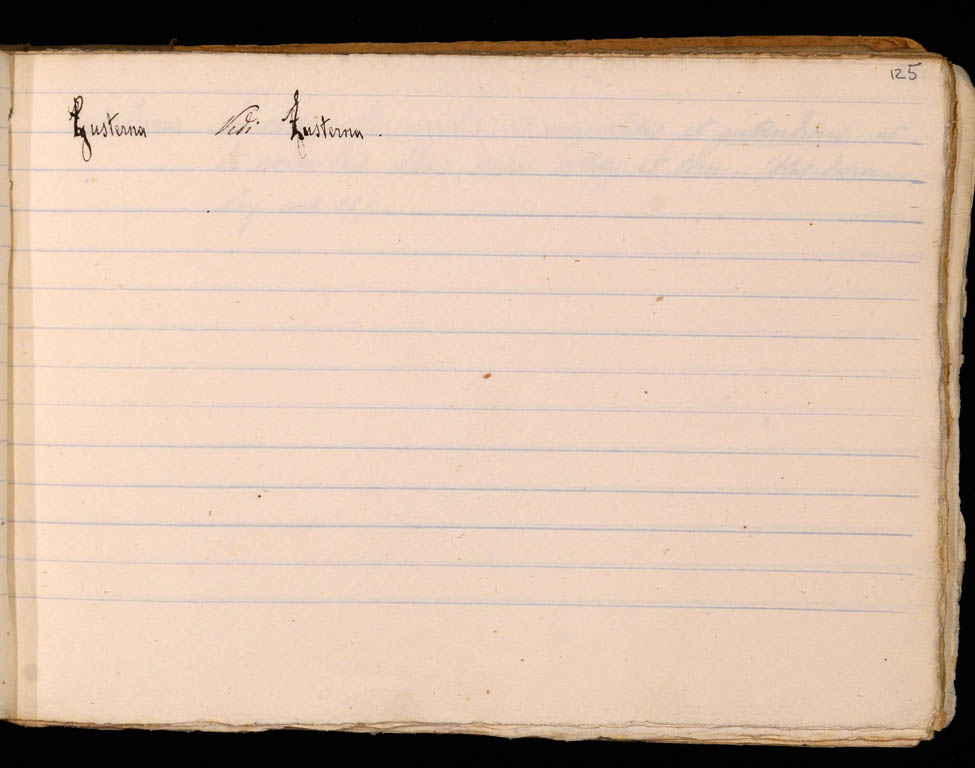 125
Zusterna Vidi Zusterna.